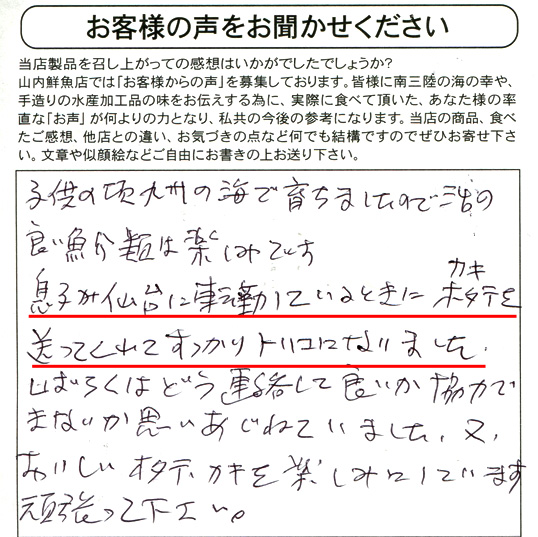 お客様の声をお聞かせください
当店製品を召し上がっての感想はいかがでしたでしょうか?
山内鮮魚店では「お客様からの声」を募集しております。皆様に南三陸の海の幸や、
手造りの水産加工品の味をお伝えする為に、実際に食べて頂いた、あなた様の率
直な「お声」が何よりの力となり、私共の今後の参考になります。当店の商品、食べ
たご感想、他店との違い、お気づきの点など何でも結構ですのでぜひお寄せ下さ
い。文章や似顔絵などご自由にお書きの上お送り下さい。
子供の頃九州の海で育ちましたので活の
良い魚介類は楽しみです
カキ
息子が仙台に転勤しているときに ホタテを
送ってくれてすっかりトリコになりました.
しばらくはどう連絡して良いか協力で
きないか思いあぐねていました、又、
おいしい ホタテ、カキを楽しみにしています
頑張って下さい。